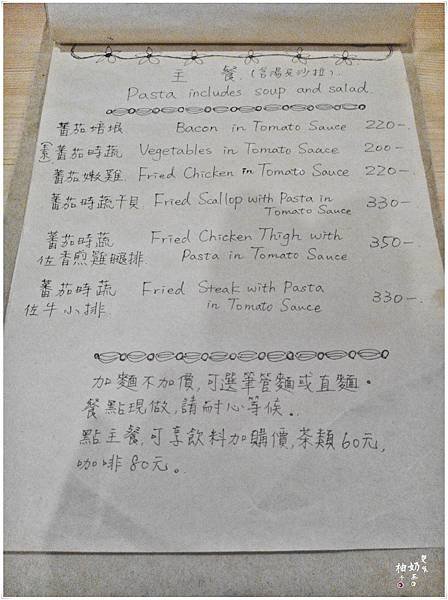 主 餐.(含湯及沙拉)
Pasta includes soup and salad.
蕃茄培根 Bacon in Tomato Sauce 220-.
(素)蕃茄時蔬 Vegetables in Tomato Sauce 200-.
蕃茄嫩雞 Fried Chicken in Tomato Sauce 220-.
蕃茄時蔬干貝 Fried Scallop with Pasta in 330-.
Tomato Sauce
蕃茄時蔬 Fried Chicken Thigh with 350-.
佐香煎雞腿排 Pasta in Tomato Sauce
蕃茄時蔬 Fried Steak with Pasta 330-.
佐牛小排 in Tomato Sauce
加麵不加價,可選筆管麵或直麵。
餐點現做,請耐心等候.
點主餐,可享飲料加購價,茶類60元,
咖啡80元。